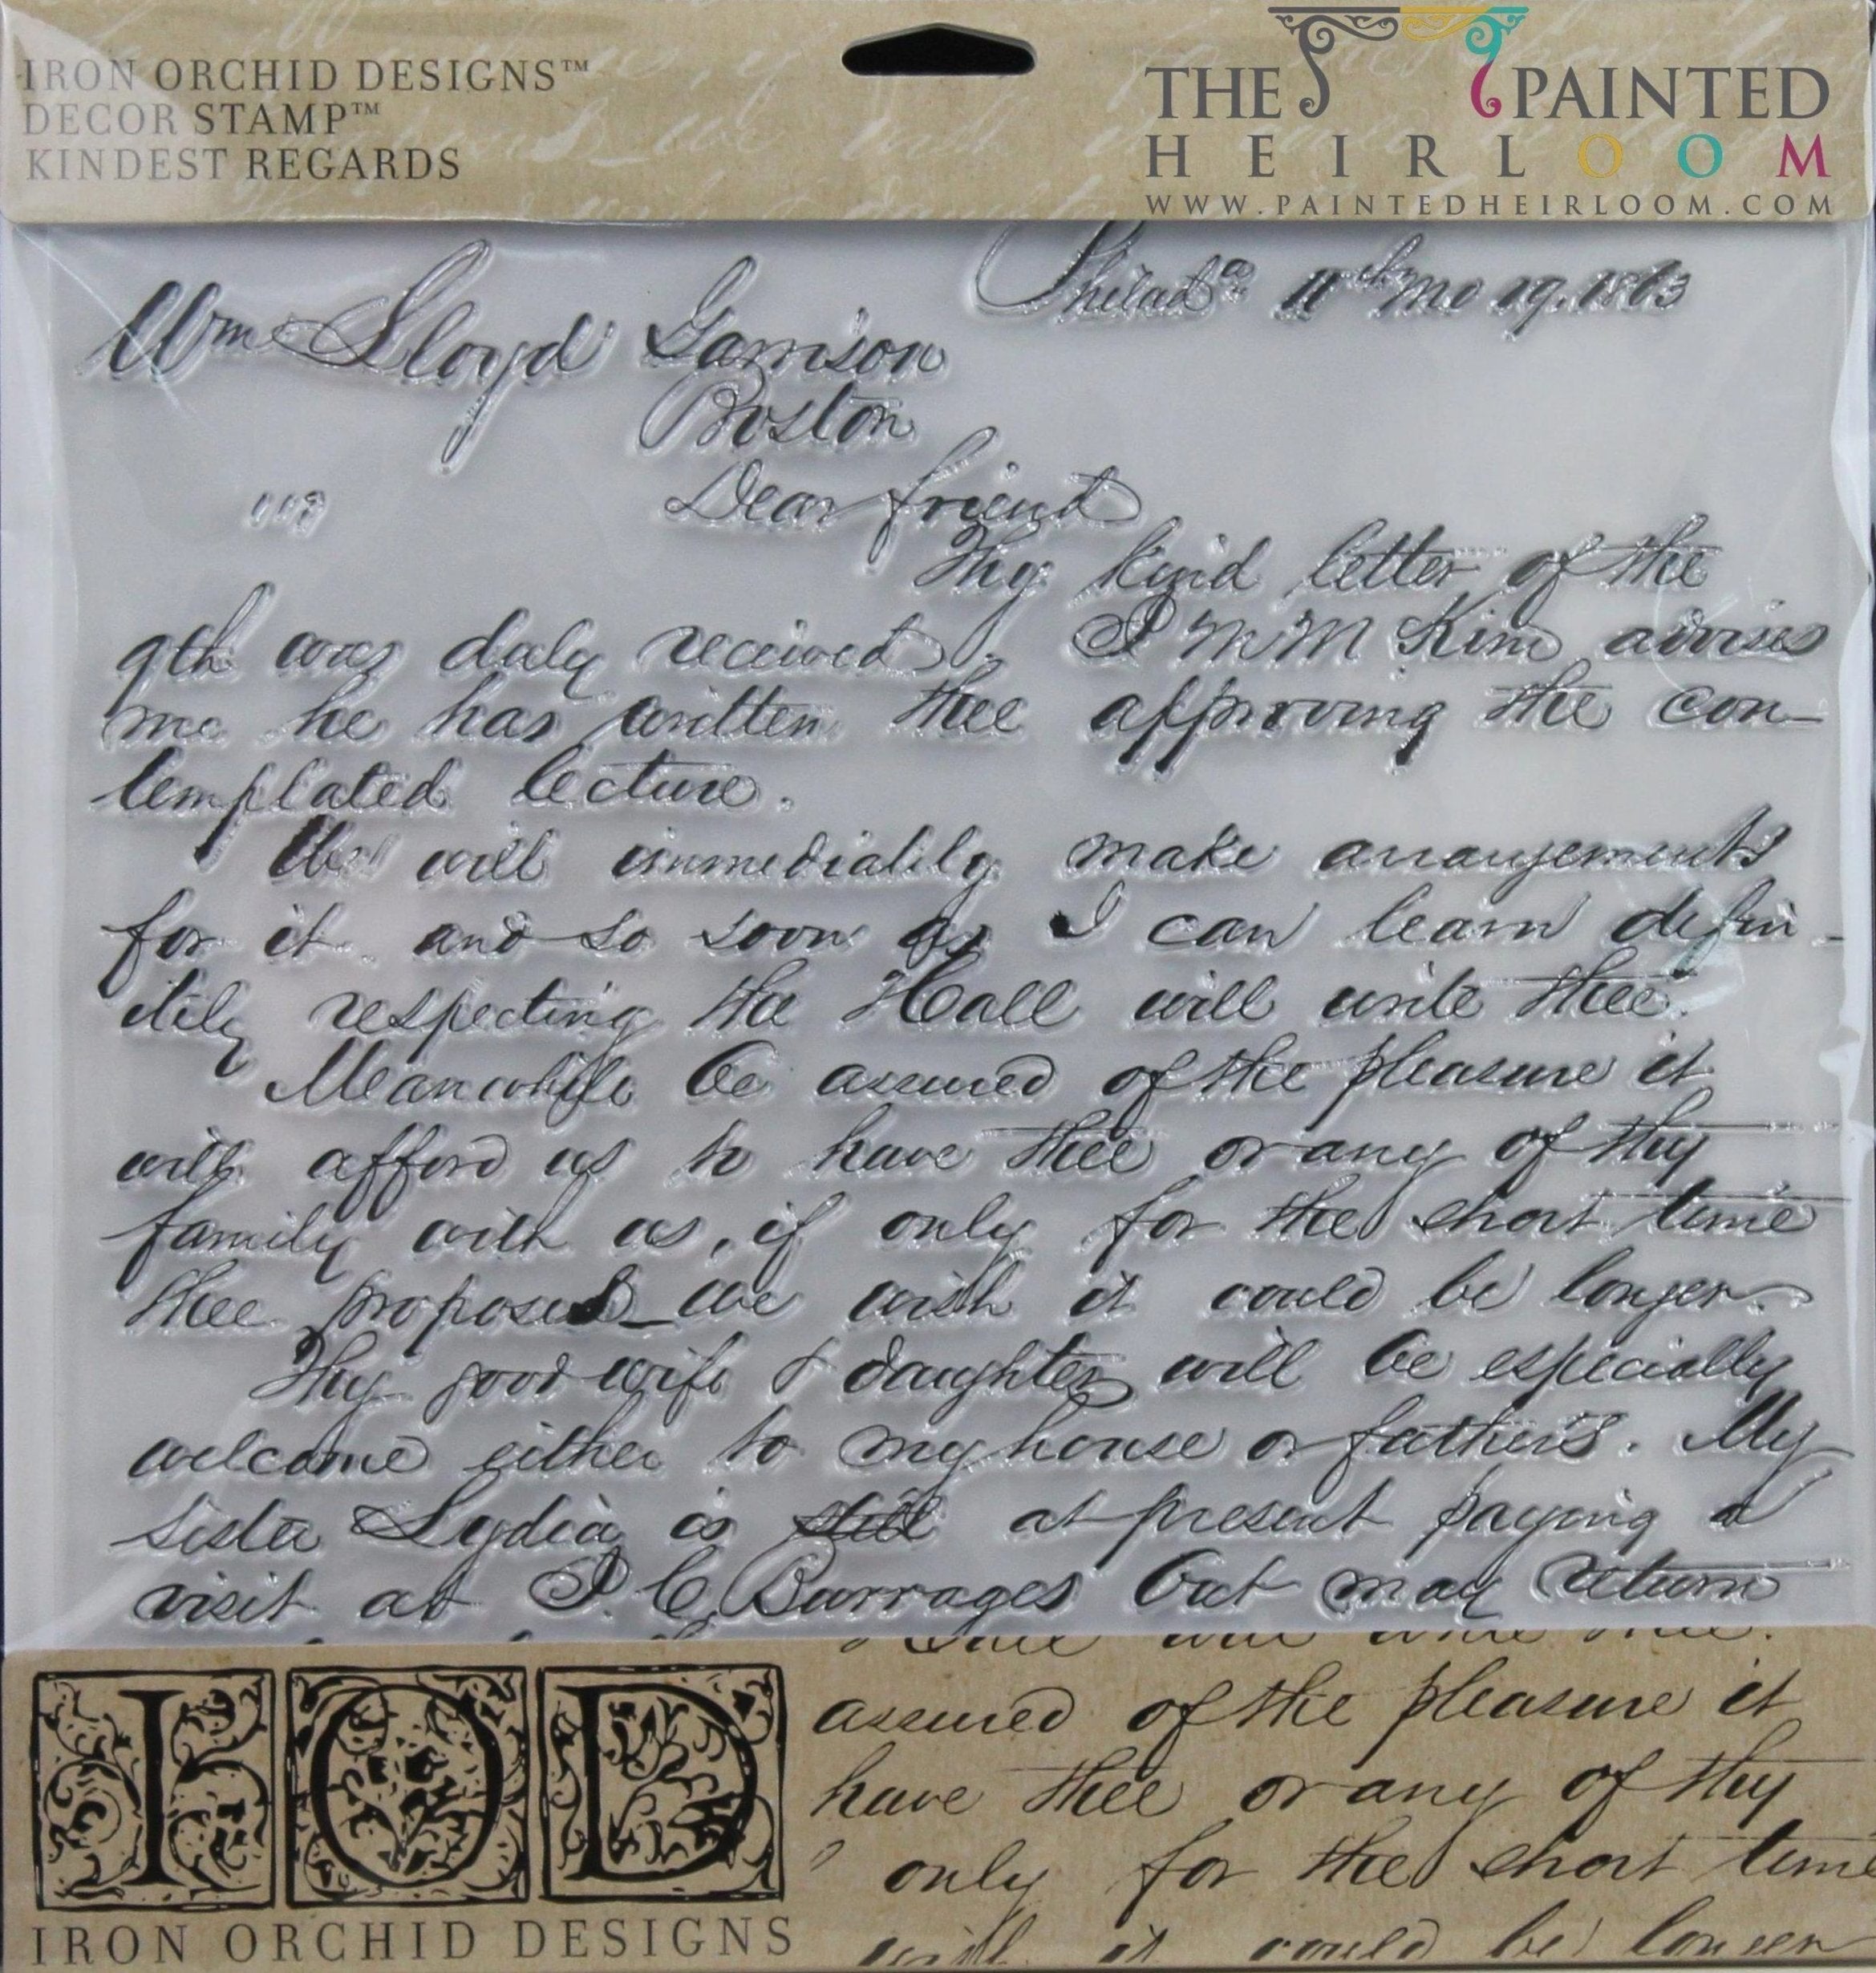 IRON ORCHID DESIGNS™
DECOR STAMP™
KINDEST REGARDS
THE PAINTED
HEIRLOOM
WWW.PAINTEDHEIRLOOM.COM
Philada 11th mo 19. 1863
Wm Lloyd Garrison
Boston
Dear friend
Thy kind letter of the
9th was duly received. J M M Kim advises
me he has written thee approving the con-
templated lecture.
We will immediately make arrangements
for it. and so soon as I can learn defin-
itely respecting the Hall will write thee.
Meanwhile be assured of the pleasure it
will afford us to have thee or any of thy
family with us, if only for the short time
thee proposed_we wish it could be longer.
Thy good wife & daughter will be especially
welcome either to my house or father's. My
sister Lydia is still at present paying a
visit at J. C. Burrages but may return
Hall will write thee.
assured of the pleasure it
have thee or any of thy
only for the short time
wish it could be longer
IOD
IRON ORCHID DESIGNS